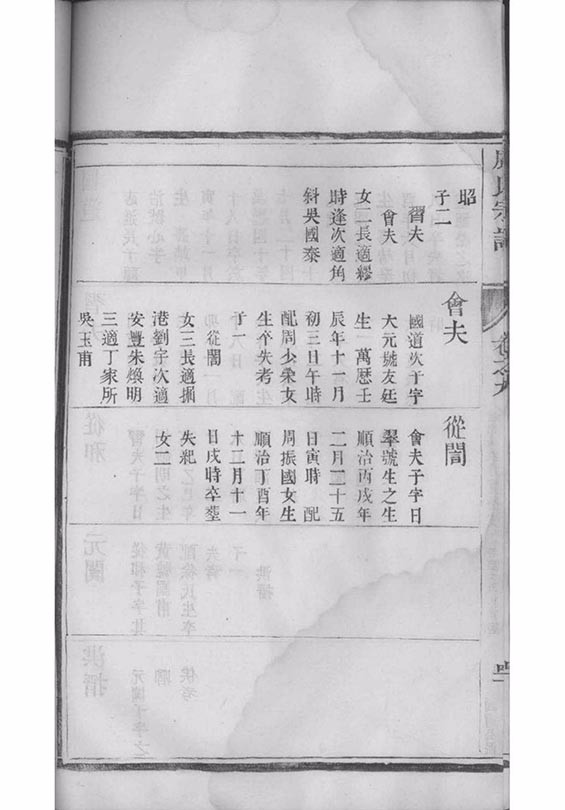 氏宗譜
昭
子二
習夫
會夫
女二長適繆
時逢次適角
斜吳國泰
會夫
國道次子字
大元號友廷
生一萬厯壬
辰年十一月
初三日午時
配周少棠女
生卒失考
子一
從闇
女三長適掘
港劉宇次適
安豐朱煥明
三適丁家所
吳玉甫
從闇
會夫子字日
翠號生之生
順治丙戌年
二月二十五
日寅時 配
周振國女生
順治丁酉年
十二月十一
日戌時卒塟
失紀
女二